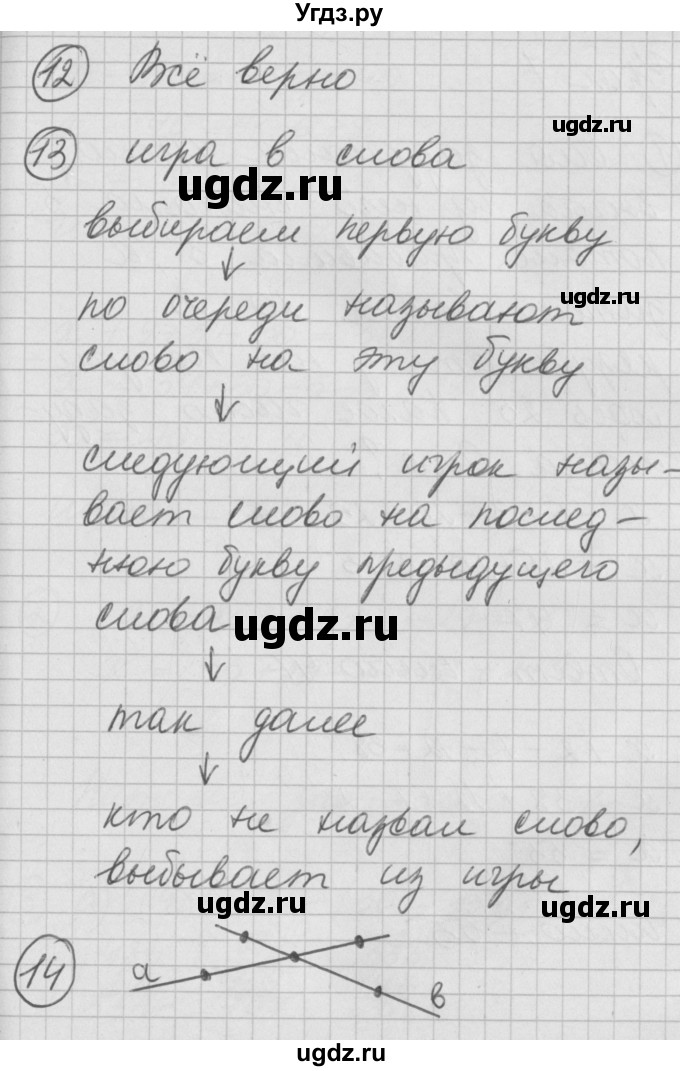 Угдз.ру
12 Всё верно
ugdz.ru
13 игра в слова
ugdz.ru
выбираем первую букву
↓
по очереди называют
ugdz.ru
слово на эту букву
↓
следующий игрок назы-
вает слово на послед-
нюю букву предыдущего
слова
ugdz.ru
↓
так далее
↓
кто не назвал слово,
выбывает из игры
ugdz.ru
ugdz.ru
14 а в
ugdz.ru